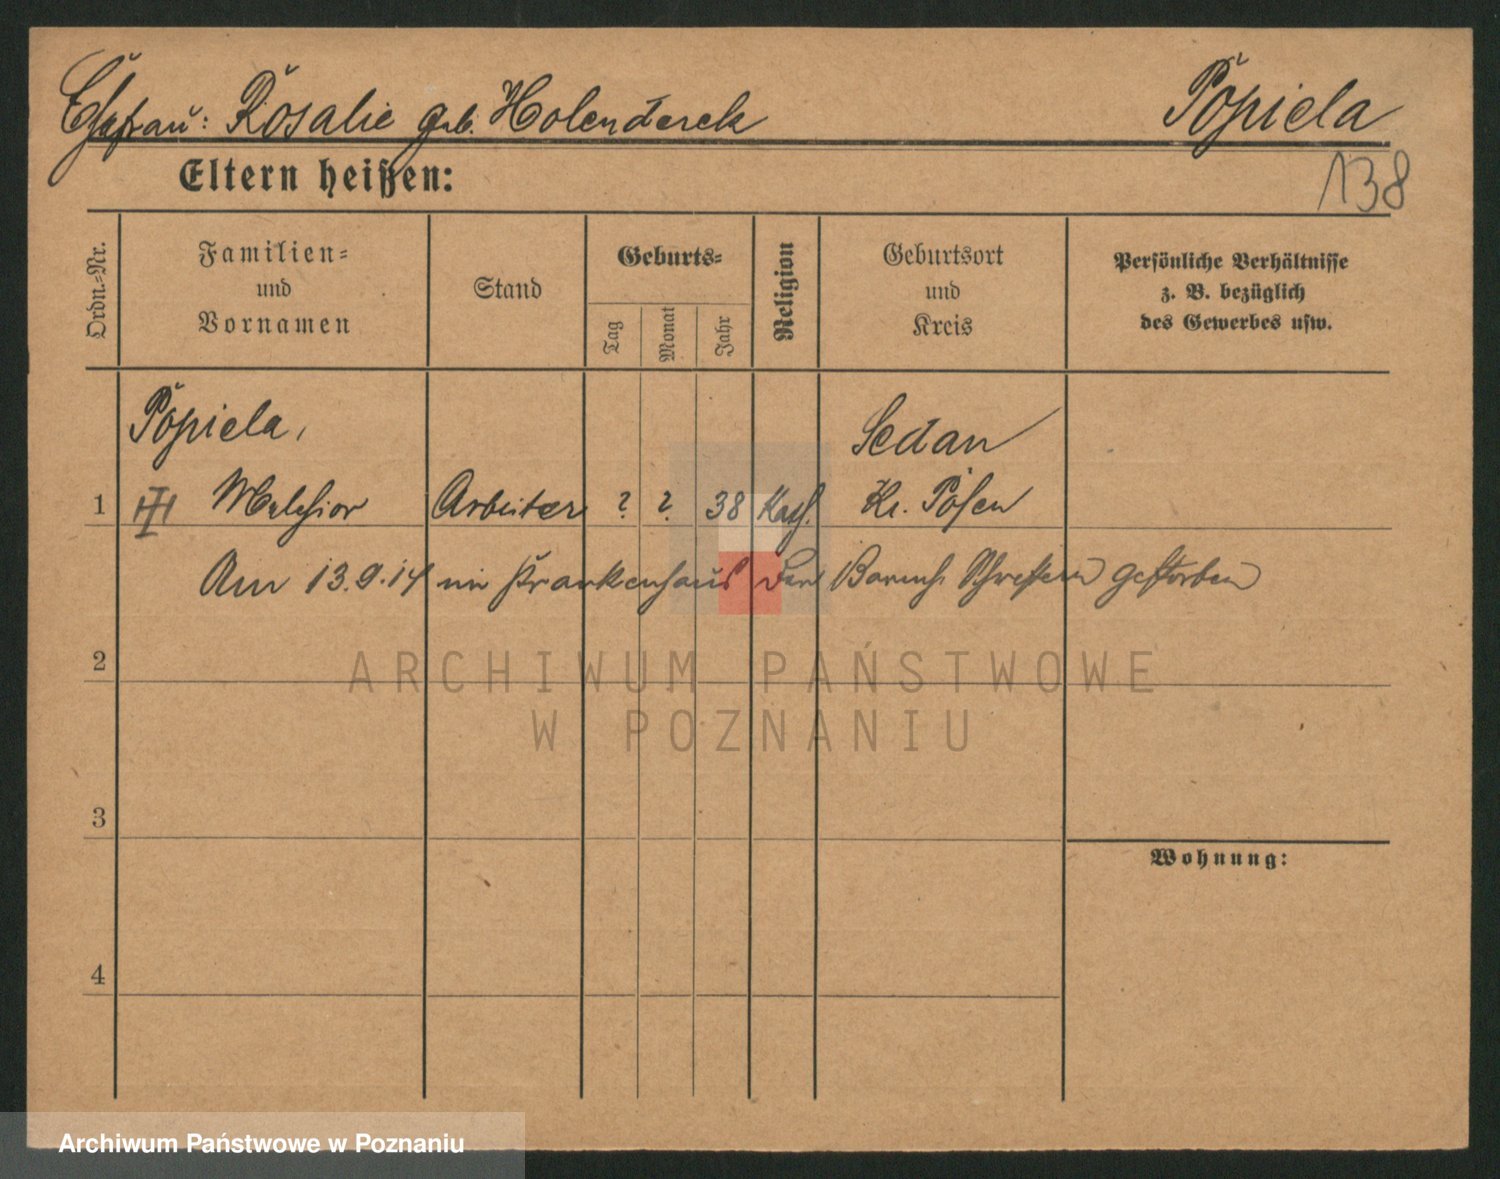 Ehefrau: Rosalie geb. Holenderek Popiela
138
Eltern heißen:
Ordn.-Nr.
Familien-
und
Vornamen
Stand
Geburts-
Tag
Monat
Jahr
Religion
Geburtsort
und
Kreis
Persönliche Verhältnisse
z. B. bezüglich
des Gewerbes usw.
Popiela, Sedan
1 Melchior Arbeiter ? ? 38 Kath. Kr. Posen
Am 13.9.14 im Krankenhaus der Barmh. Schwestern gestorben
2
3
4
Wohnung:
ARCHIWUM PAŃSTWOWE
W POZNANIU
Archiwum Państwowe w Poznaniu